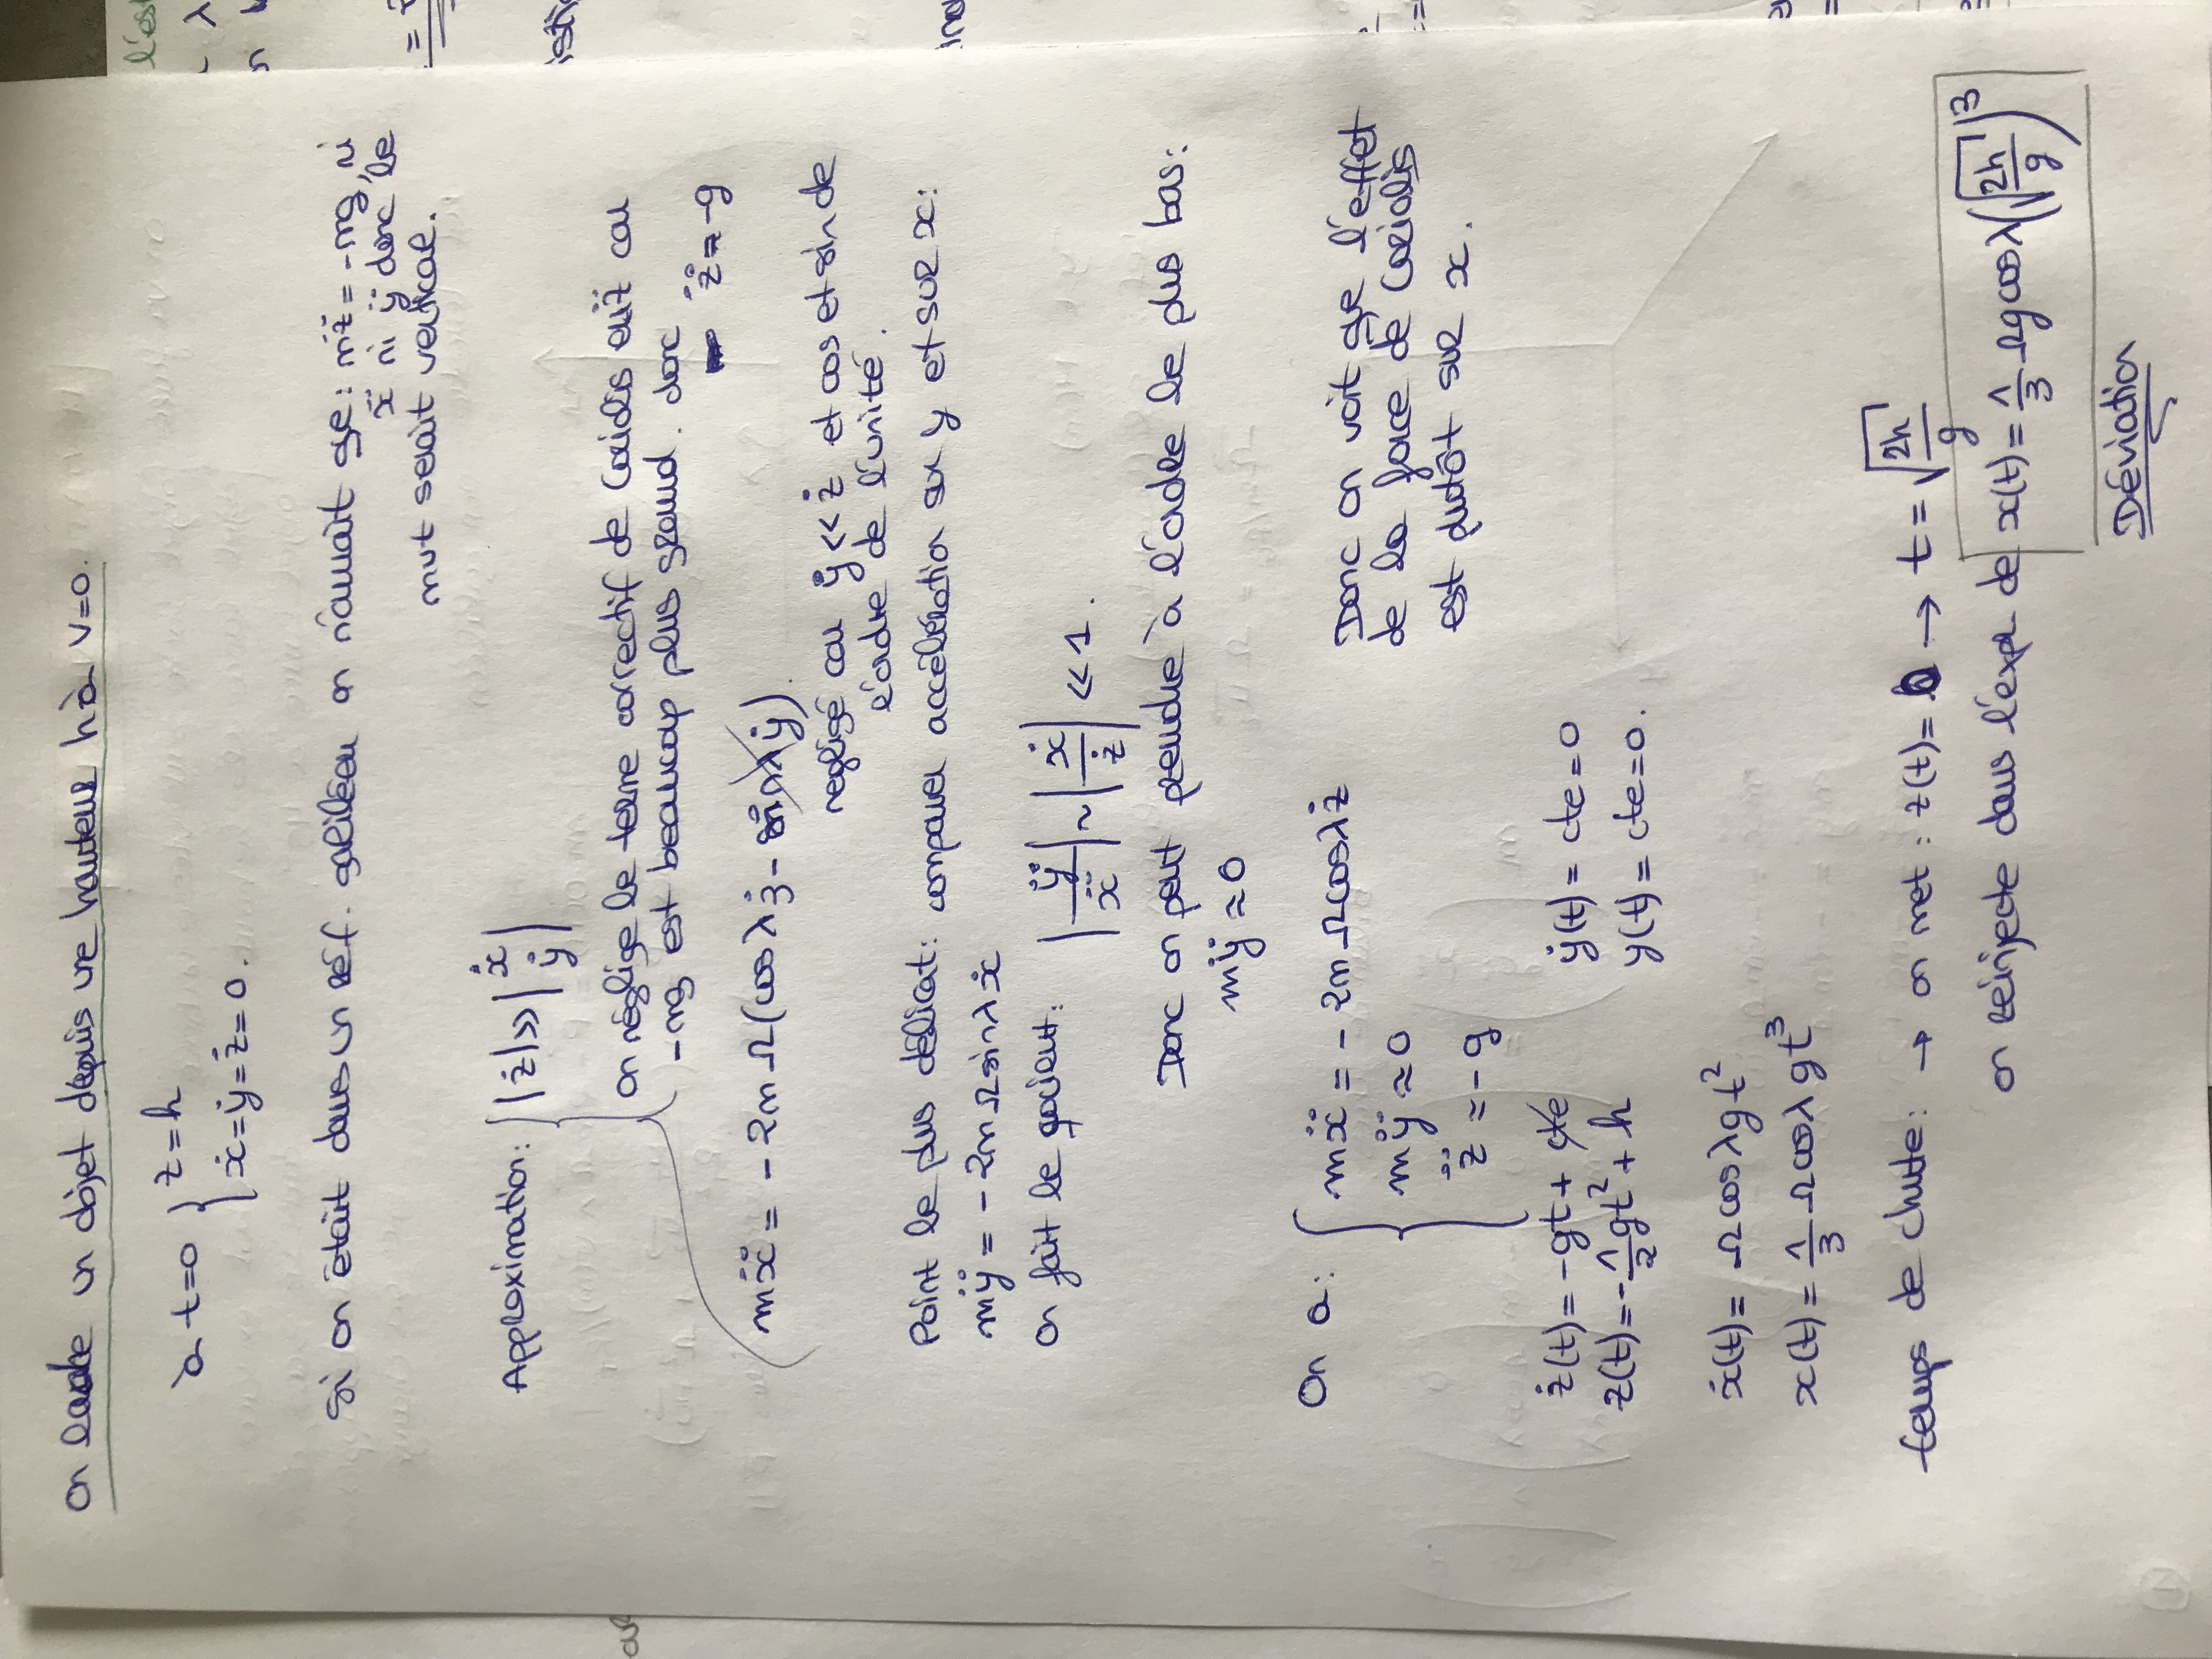 on lâche un objet depuis une hauteur h à v=0.
à t=0 { z=h
ẋ=ẏ=ż=0.
Si on était dans un réf. galiléen on n'aurait que: mz̈=-mg, ni
ẍ ni ÿ donc le
mvt serait vertical.
Approximation: { |ż|>>|ẋ ẏ|
on néglige le terme correctif de Coriolis en z̈ car
-mg est beaucoup plus grand. donc
z̈=-g
mẍ = -2mΩ(cosλż - sinλẏ).
négligé car ẏ<<ż et cos et sin de
l'ordre de l'unité.
Point le plus délicat: comparer accélération sur y et sur x:
mÿ = -2mΩsinλẋ
On fait le quotient: |ÿ/ẍ| ~ |ẋ/ż| << 1.
Donc on peut prendre à l'ordre le plus bas:
mÿ ≈ 0
On a: { mẍ = -2mΩcosλż
mÿ ≈ 0
z̈ ≈ -g
Donc on voit que l'effet
de la force de Coriolis
est plutôt sur x.
ż(t)= -gt + cte
z(t)= -1/2 gt² + h
ẏ(t)= cte = 0
y(t)= cte=0.
ẋ(t)= Ωcosλgt²
x(t)= 1/3 Ωcosλgt³
temps de chute: → on met: z(t)= 0 → t= √(2h/g)
on réinjecte dans l'expr de x(t)= 1/3 Ωgcosλ(√(2h/g))³
Déviation
l'es
λ